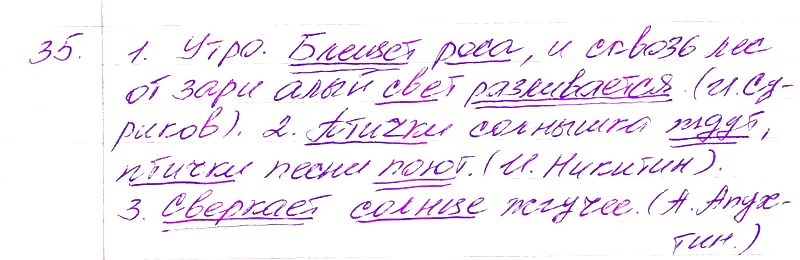 35. 1. Утро. Блещет роса, и сквозь лес
от зари алый свет разливается. (И.Су-
риков). 2. Птички солнышка ждут,
птички песни поют. (И. Никитин).
3. Сверкает солнце жгучее. (А. Апух-
тин.)